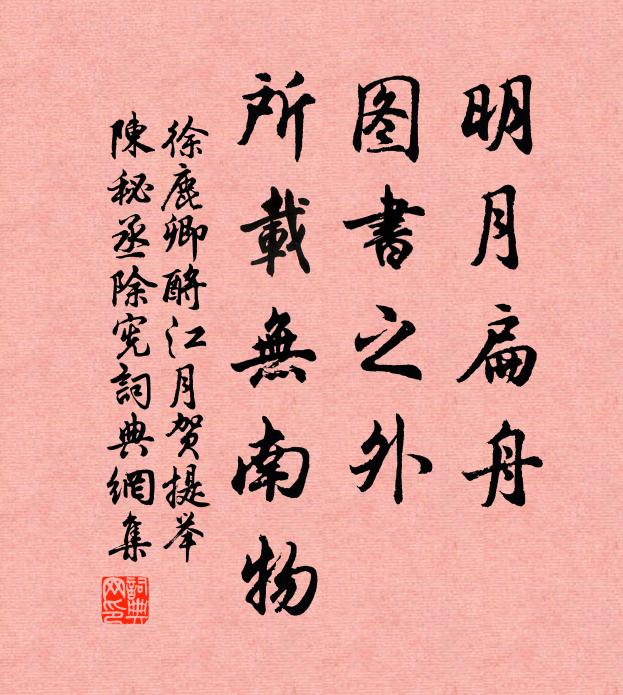 明月扁舟
图書之外
所載無南物
徐鹿卿酹江月贺提举
陳秘丞除宪詞典網集
詞典网印